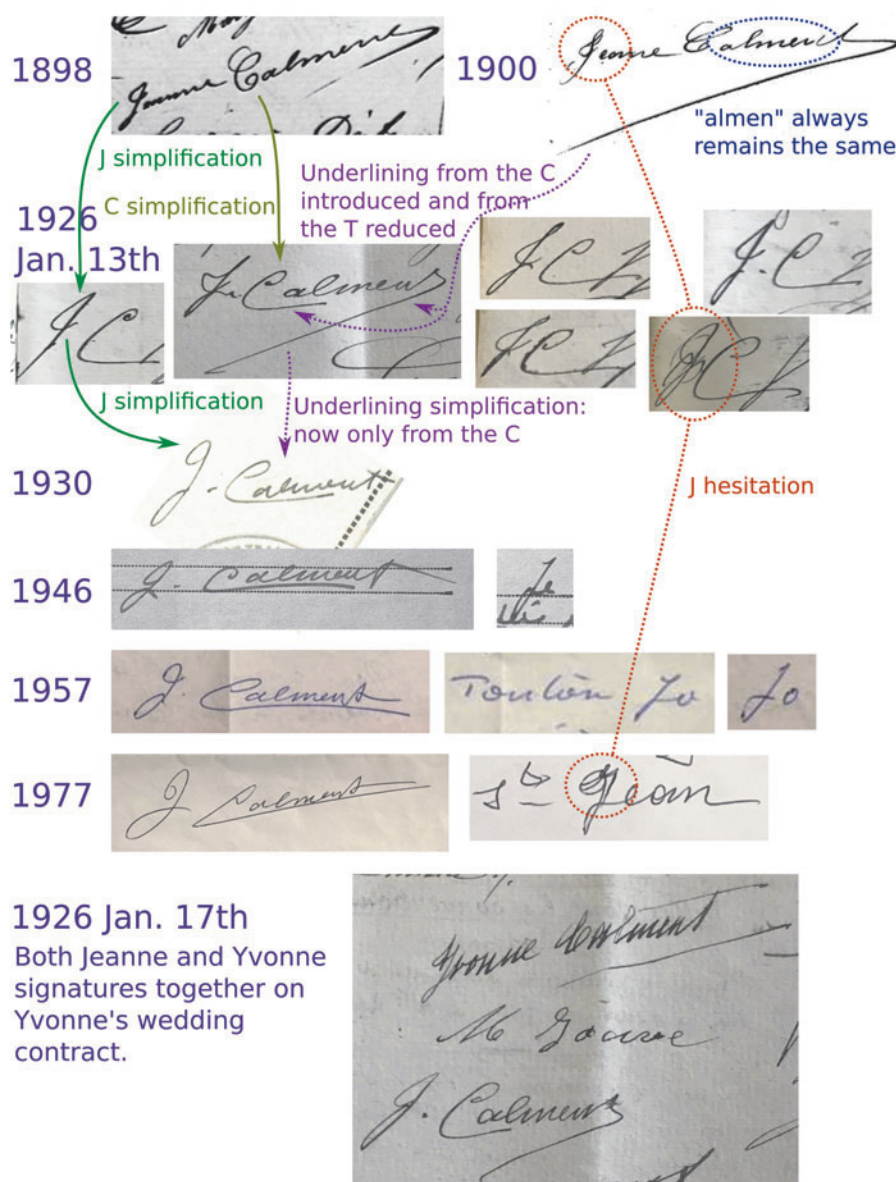 1898
Jeanne Calment
1900
Jeanne Calment
"almen" always
remains the same
J simplification
C simplification
Underlining from the C
introduced and from
the T reduced
1926
Jan. 13th
J C
Je Calment
J C
J. C
J C
J C
J simplification
Underlining simplification:
now only from the C
1930
J. Calment
J hesitation
1946
J. Calment
Je
1957
J. Calment
Toulon Jo
Jo
1977
J Calment
St Jean
1926 Jan. 17th
Both Jeanne and Yvonne
signatures together on
Yvonne's wedding
contract.
Yvonne Calment
J. Calment